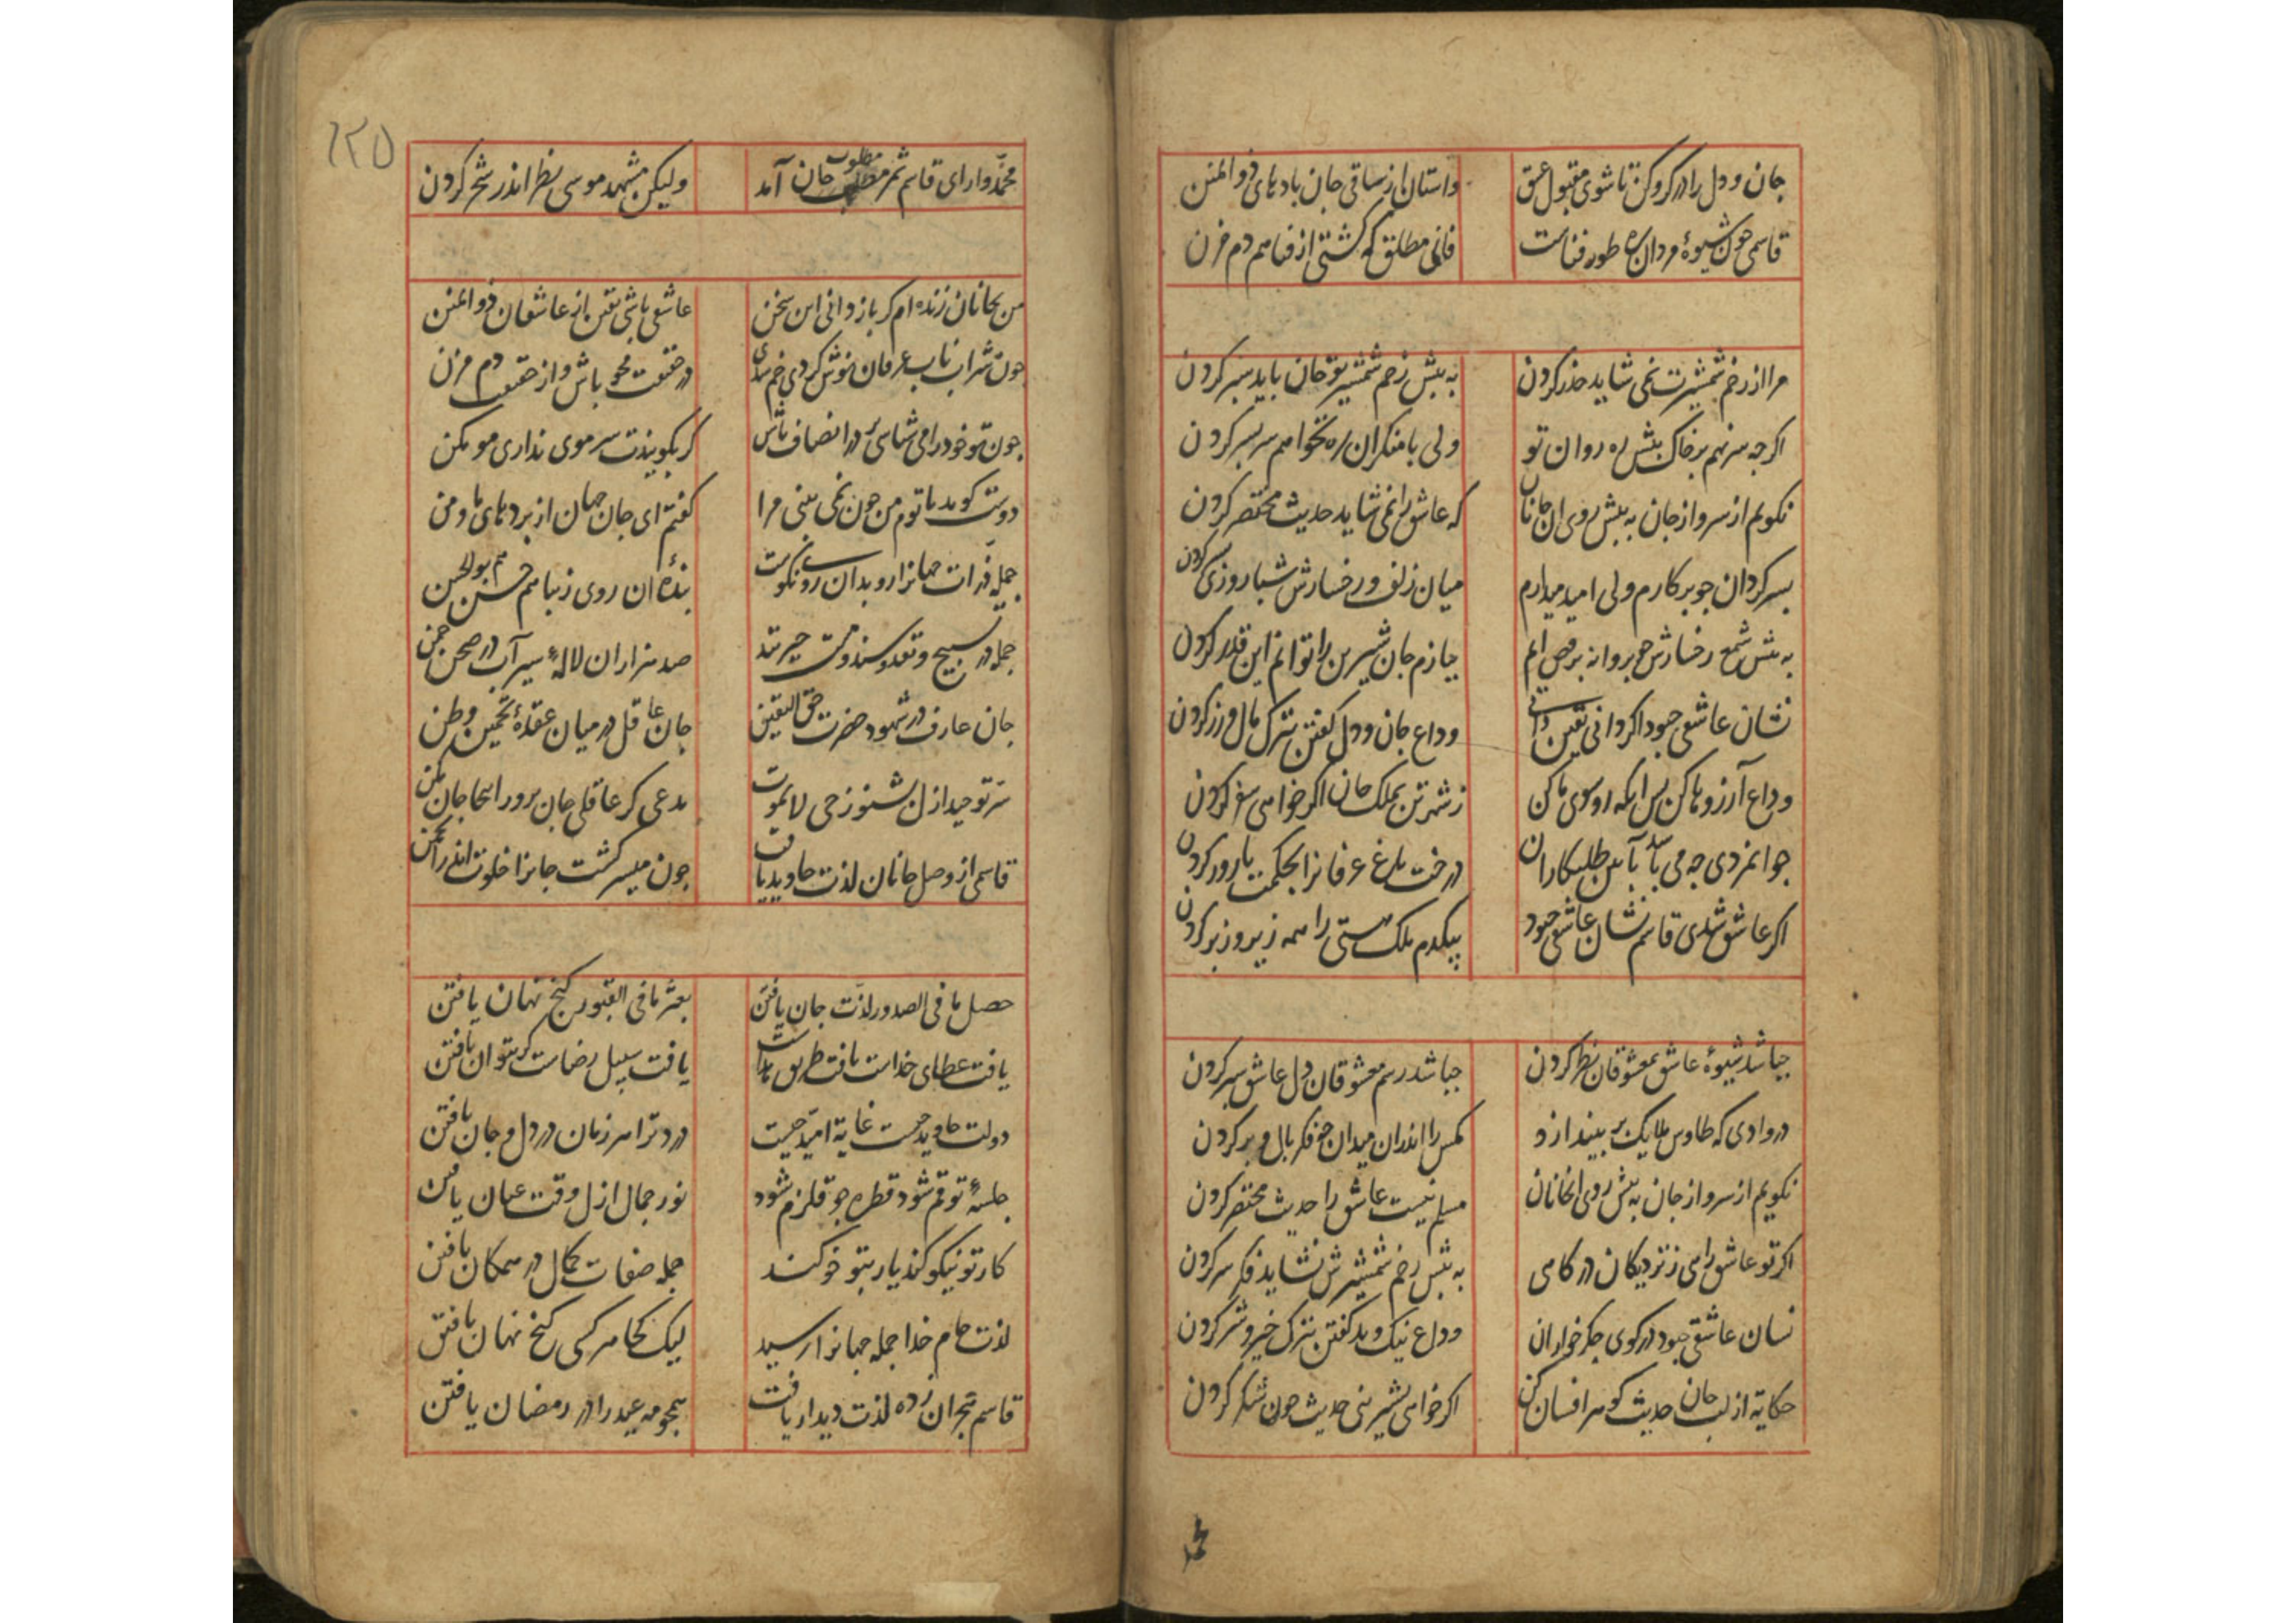 جان و دل را در کرو کن تا شوی مقبول عشق واستان از ساقی جان بادهای ذوالمنن
قاسمی چون شیوهٔ مردان ره طور فناست فانی مطلق که کشتی از فنا هم دم مزن
مرا از زخم شمشیرت نمی شاید حذر کردن به پیش زخم شمشیر تو جان باید سپر کردن
اکرجه سر نهم بر خاک پیش ره روان تو ولی با منکران ره نخواهم سر بسر کردن
نکویم از سر و از جان به پیش روی ان جانان که عاشق را نمی شاید حدیث مختصر کردن
بسر کردان جو برکارم ولی امید میدارم میان زلف و رخسارش شبا روزی کردن
به پیش شمع رخسارش جو بروانه برقص ایم ببازم جان شیرین را توانم این قدر کردن
نشان عاشقی جبود اکر دانی یقین دانی وداع جان و دل کفتن بترک مال و زر کردن
وداع آرزوها کن پس انکه رو سوی ما کن ز شهر تن بملک جان اکر خواهی سفر کردن
جوانمردی جه می باشد آیین طلبکاران درخت باغ عرفانرا بحکمت بارور کردن
اکر عاشق شدی قاسم نشان عاشقی جبود بیکدم ملک هستی را همه زیر و زبر کردن
جباشد شیوهٔ عاشق بمعشوقان نظر کردن جباشد رسم معشوقان دل عاشق سپر کردن
در وادی که طاوس ملایک پر بیندازد مکس را اندران میدان جه فکر بال و پر کردن
نکویم از سر و از جان به پیش روی ان جانان مسلم نیست عاشق را حدیث مختصر کردن
اکر تو عاشق رامی ز نزدیکان درکاهی به پیش زخم شمشیرش نشاید فکر سر کردن
نسان عاشقی جبود در کوی جکر خواران وداع نیک و بد کفتن بترک خیر و شر کردن
حکایة از لب جان حدیث کوهر افسان کن اکر خواهی بشیرینی حدیث جون شکر کردن
محمد
١٢٥
محمدوار ای قاسم ثمر مطلوب جان آمد ولیکن مشهد موسی نظر اندر شجر کردن
من بجانان زنده ام کر باز دانی این سخن عاشقی باشی یقین از عاشقان ذوالمنن
جون شراب ناب عرفان نوش کردی خم در حقیقت محو باش و از حقیقت دم مزن
جون تو خود رامی شناسی در انصاف باش کر بکویندت سر موی نداری مو مکن
دوست کوید با توم من جون نمی بینی مرا کفتم ای جان جهان از بردهای ما و من
جمله ذرات جهانرا رو بدان روی نکوست بندهٔ ان روی زیبا هم حسن هم بوالحسن
جمله در تسبیح و تقدیسند و مست حیرتند صد هزاران لالهٔ سیراب در صحن جمن
جان عارف در شهود حضرت حق الیقین جان عاقل در میان عقدهٔ تخمین وطن
سر توحید از ل بشنو ز حی لایموت مدعی کر عاقلی جان برور اینجا جان مکن
قاسمی از وصل جانان لذت جاوید یافت جون میسر کشت جانرا خلوت اندر انجمن
حصل ما فی الصدور لذت جان یافتن بعثر ما فی القبور کنج نهان یافتن
یافت عطای خداست یافت طریق یافت سبیل رضاست کر بتوان یافتن
دولت جاوید جیست غایة امید جیست درد ترا هر زمان در دل و جان یافتن
جلسهٔ تو قم شود قطره جو قلزم شود نور جمال ازل وقت عیان یافتن
کار تو نیکو کند یار بتو خو کند جمله صفات کمال در همکان یافتن
لذت جام خدا جمله جهانرا رسید لیک کجا هر کسی کنج نهان یافتن
قاسم هجران زده لذت دیدار یافت همجو مه عید را در رمضان یافتن